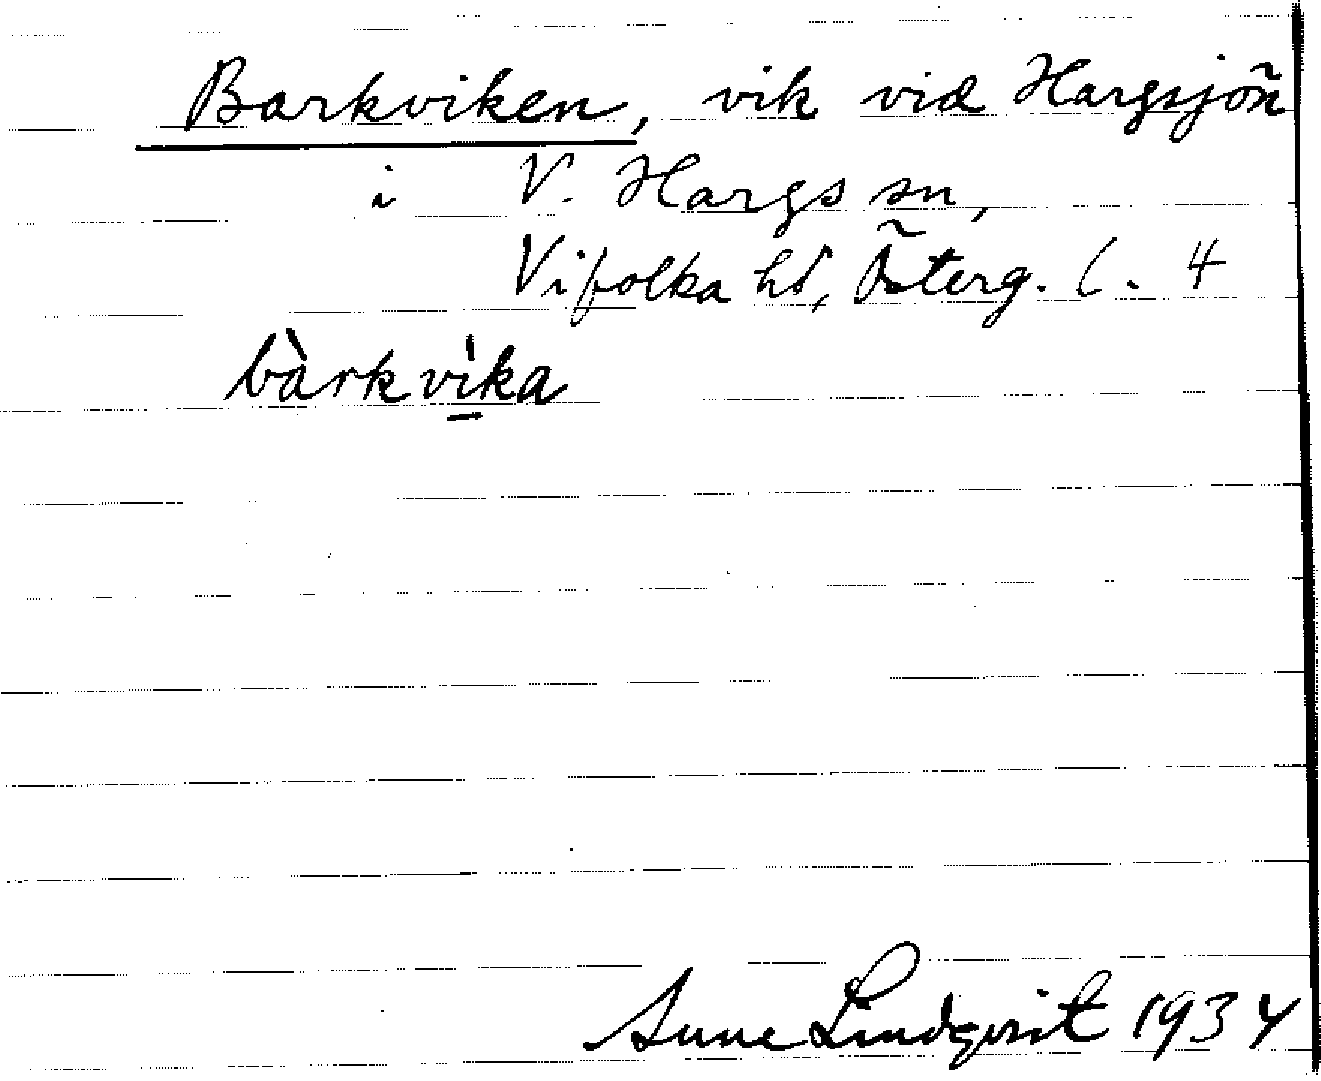 Barkviken, vik vid Hargsjön
i V. Hargs sn,
Vifolka hd, Österg. l. 4
bàrkvi̠̇̀ka
Sune Lindqvist 1934